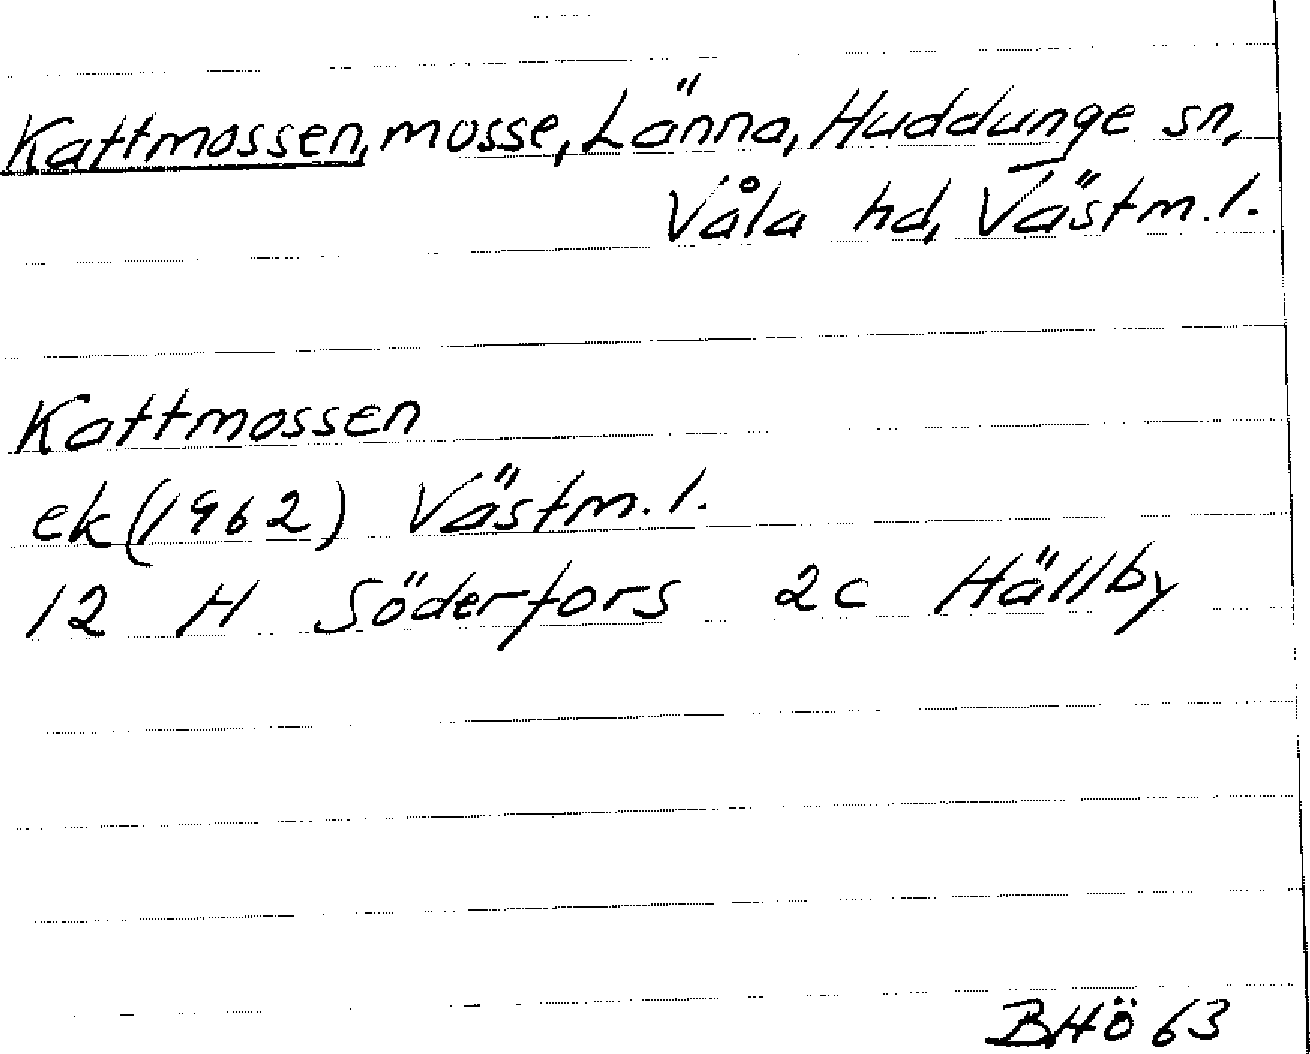 Kattmossen, mosse, Länna, Huddunge sn,
Våla hd, Västm. l.
Kattmossen
ek (1962) Västm. l.
12 H Söderfors 2c Hällby
BHö 63